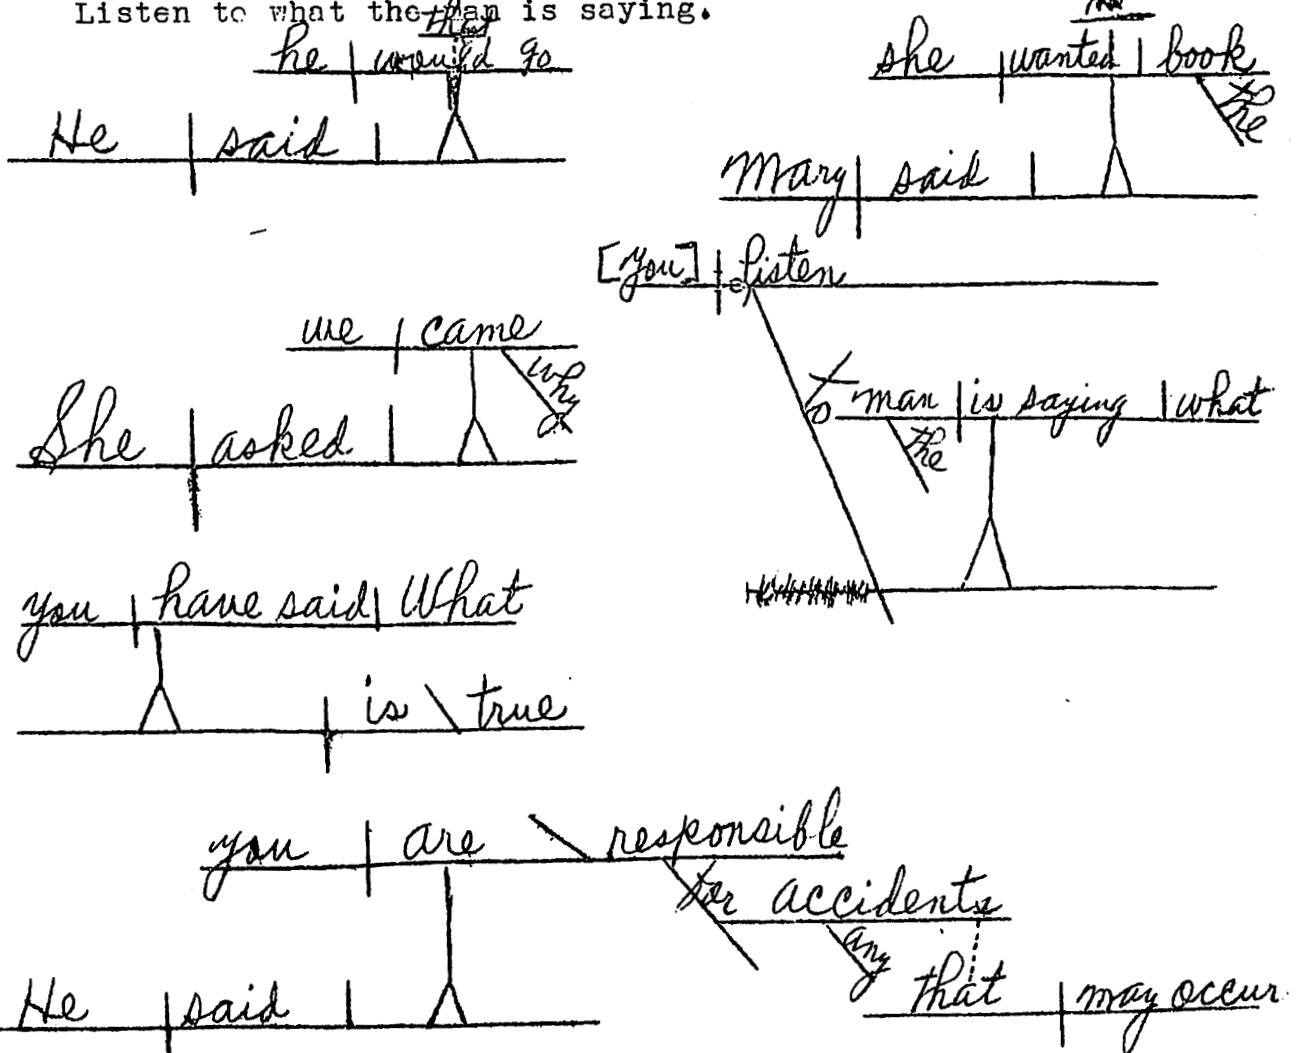 Listen to what the man is saying.
that
he would go
He said
she wanted book
the
Mary said
[you] listen
to
man is saying what
the
we came
why
She asked
you have said What
is true
you are responsible
for accidents
any
that may occur
He said